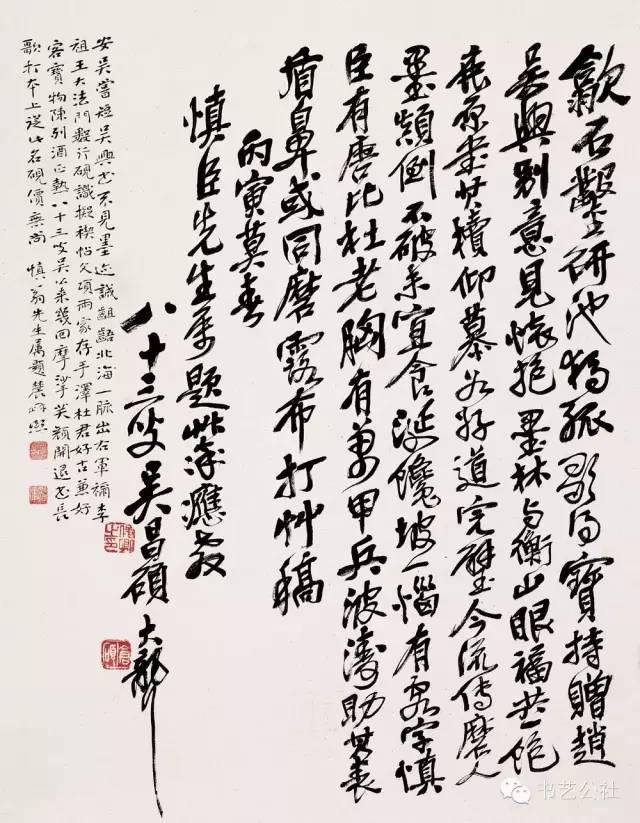 歙石凿研池独孤歌得宝持赠赵
吴兴别意见怀抱墨林与衡山眼福共一饱
尧原书廿犊仰慕如好道完璧今流传磨人
墨颠倒不破未宜食涎馋坡一恼有客字慎
臣有唐比杜老胸有万甲兵波涛助其袤
盾鼻或同磨露布打艸稿
丙寅莫春
慎臣先生属题率泽应教
八十三叟吴昌硕大聋
安吴尝短吴兴书不见墨迹诚龃龉北海一脉出右军祢李
祖王大法门数行砚识拟禊帖久项两家存手泽杜君好古兼好
客宝物陈列酒正熟八十三叟吴公来几回摩沙笑颜开退书长
歌打本上从此名砚价无尚 慎翁先生属题
书艺公社